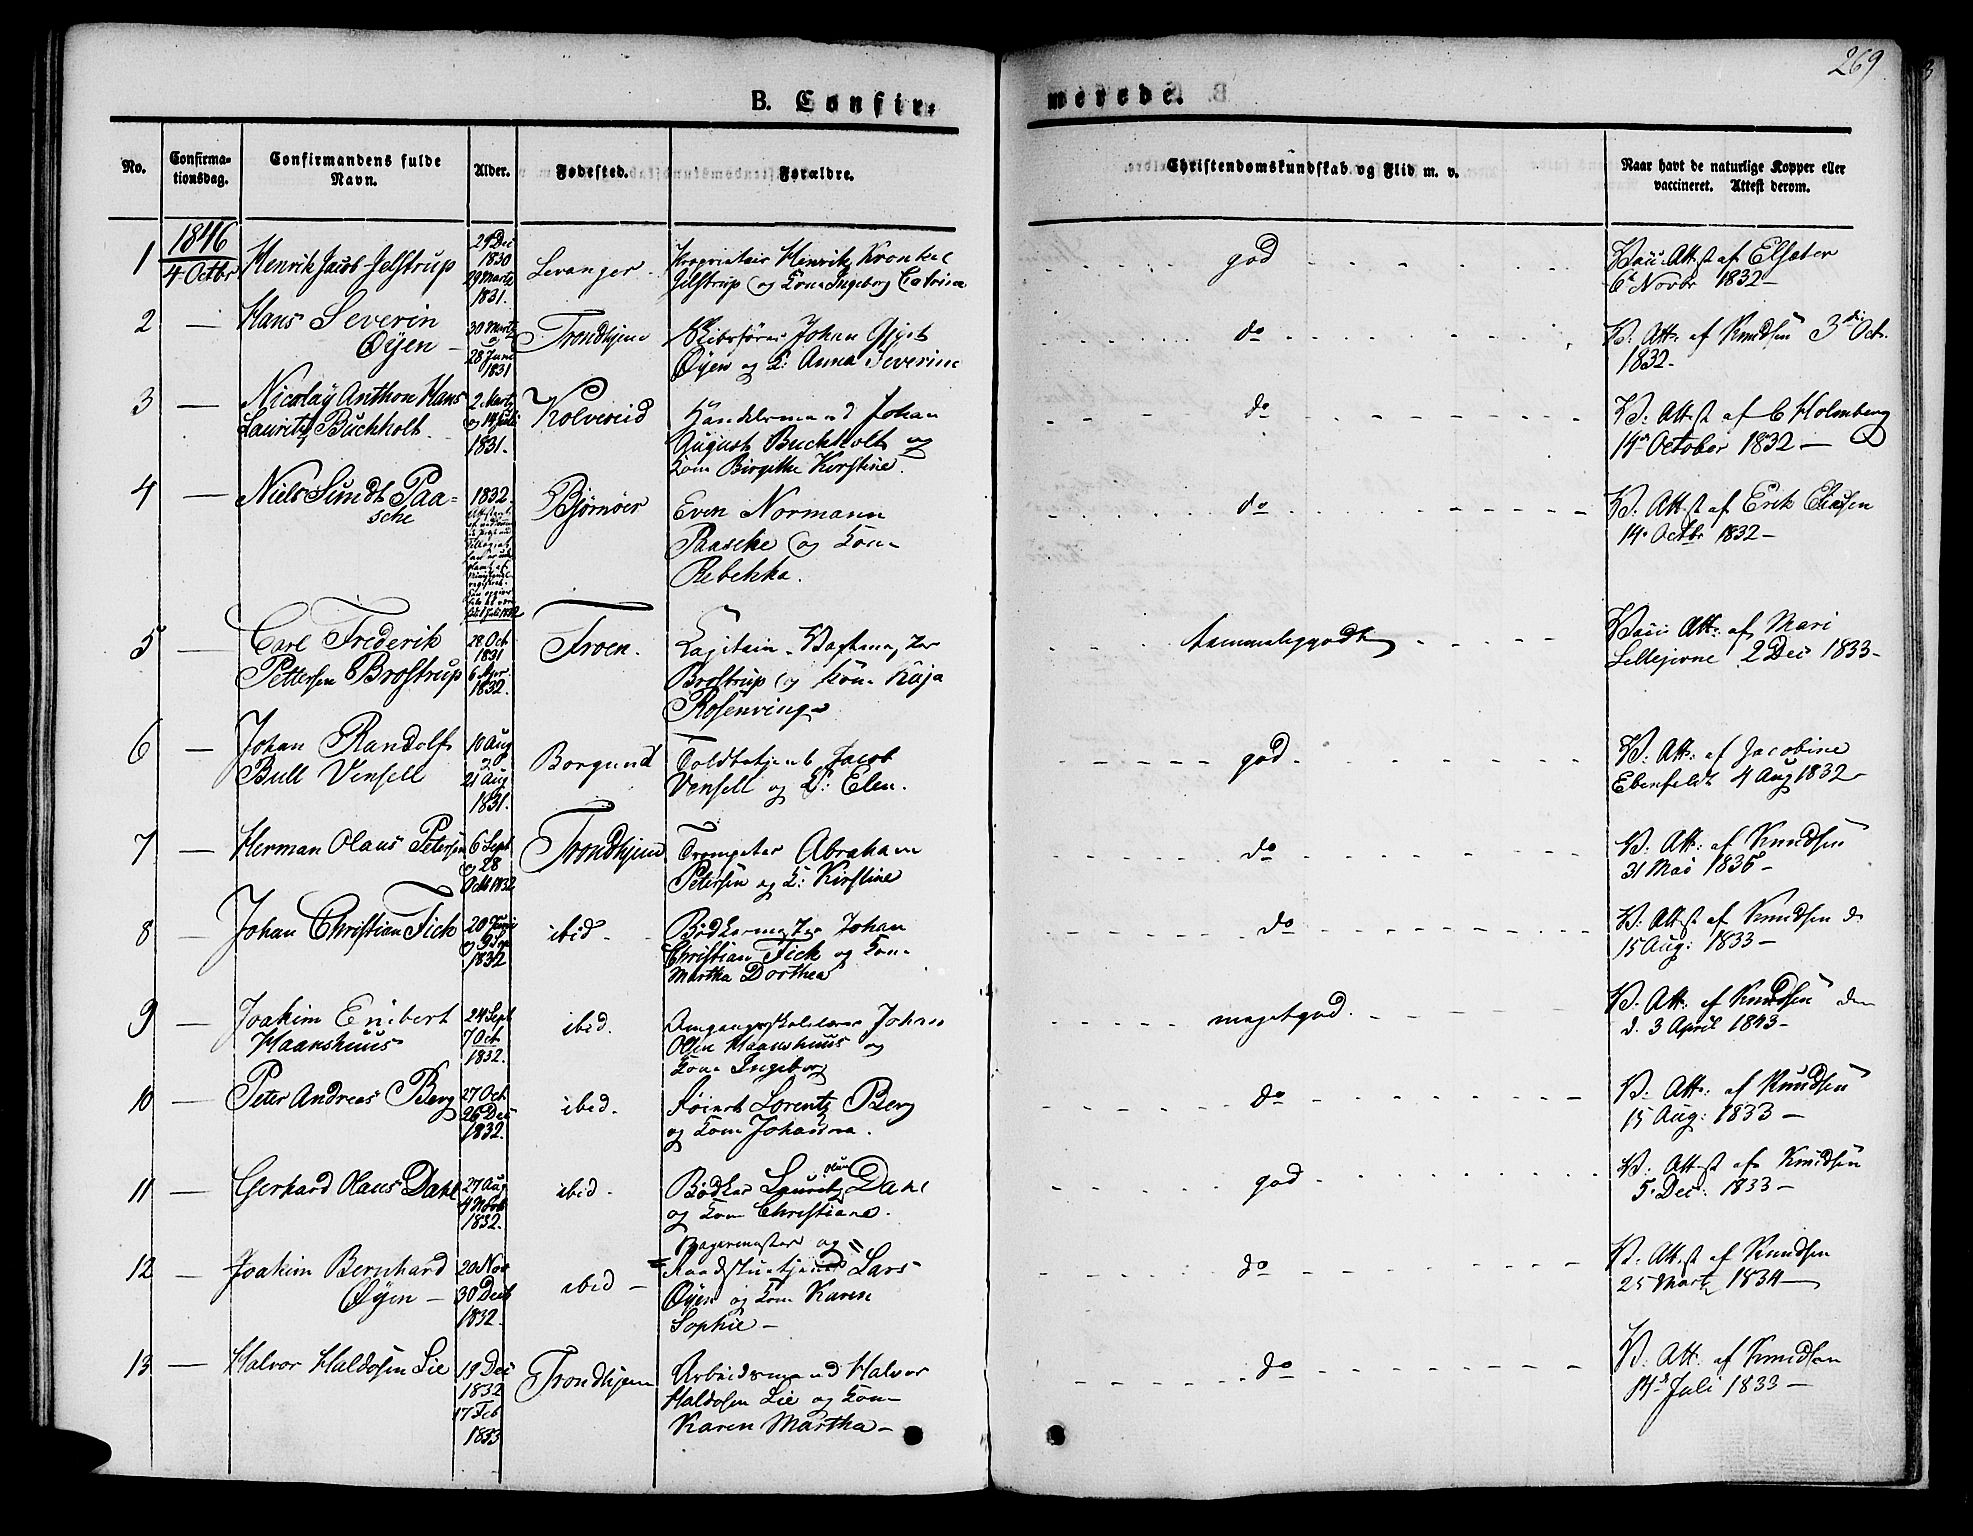 269
B. Confir-
merede.
No.
Confirma-
tionsdag.
Confirmandens fulde
Navn.
Alder.
Fødested.
Forældre.
Christendomskundskab og Flid m. v.
Naar havt de naturlige Kopper eller
vaccineret. Attest derom.
1846
1
4 Octbr
Henrik Jacob Jelstrup
29 Dec
1830
29 Marts
1831.
Levanger
Proprietair Henrik
Jelstrup og Kone Ingeborg Catrine
god
Vacc. Attst af Elsæter
6 Novbr 1832
2 —
Hans Severin
Øÿen
30 Marts
28 Juni
1831
Trondhjem
Johan
Øÿen og K: Anna Severine
do
V. Att: af Knudsen 3die Oct.
1832.
3 —
Nicolaÿ Anthon Hans
Lauritz Buchholt
2 Marts
og 14 Juli
1831.
Kolvereid
Handelsmand Johan
August Buchholt og
Kone Birgithe Kirstine.
do
V. Attest af C Holmberg
14 October 1832 —
4 —
Niels Sundt Paa-
sche
1832.
Bjørnöer
Even Normann
Paasche og Kone
Rebekka.
do
V. Attst af Erik
14 Octbr 1832 —
5 —
Carl Frederik
Pettersen Brostrup
28 Oct
1831
6 Apr.
1832.
Troen.
Capitain, Vagtmester
Brostrup og Kone Kaja
Rosenvinge
temmeliggodt
Vacc Att: af Mari
2 Dec 1833 —
6 —
Johan Randolf
Bull Vensell
10 Aug
21 Aug
1831.
Borgund
Toldbetjent Jacob
Vensell og K: Elen.
god
V. Att: af Jacobine
Ebenfeldt 4 Aug 1832
7 —
Herman Olaus Petersen
6 Sept
og 28
Octb 1832
Trondhjem
Trompeter Abraham
Petersen og K: Kirstine
do
V: Att: af Knudsen
31 Mai 1835 —
8 —
Johan Christian Fick
20 Juni
1832
ibid.
Bödkermester Johan
Christian Fick og Kone
Martha Dorthea
do
V. Attst af Knudsen d
15 Aug: 1833 —
9 —
Joakim Enibert
Haanshuus
24 Sept
7 Oct
1832.
ibid.
Omgangsskolelærer Johan
Olsen Haanshuus og
Kone Ingeborg
megetgod.
V. Att: af Knudsen den
d. 3 April 1843 —
10 —
Peter Andreas Berg
27 Oct
26 Dec
1832.
ibid.
Lorentz Berg
og Kone Johanna.
do
V. Att: af Knudsen
15 Aug: 1833 —
11 —
Gerhard Olaus Dahl
27 Aug
1832.
ibid.
Bödker Lauritz Dahl
og Kone Christiane.
god
V: Attest af Knudsen
5 Dec: 1833 —
12 —
Joakim Bernhard
Øÿen —
20 Nov
30 Decb
1832.
ibid —
Bagermester og
Raadstuetjener Lars
Øÿen og Kone Karen
Sophie —
do
V: Attst af Knudsen
25 Marts 1834 —
13 —
Halvor Haldosen Lie
19 Dec
1832
17 Feb
1833
Trondhjem
Arbeidsmand Halvor
Haldosen Lie og Kone
Karen Martha —
do
V. Att. af Knudsen
14 Juli 1833 —